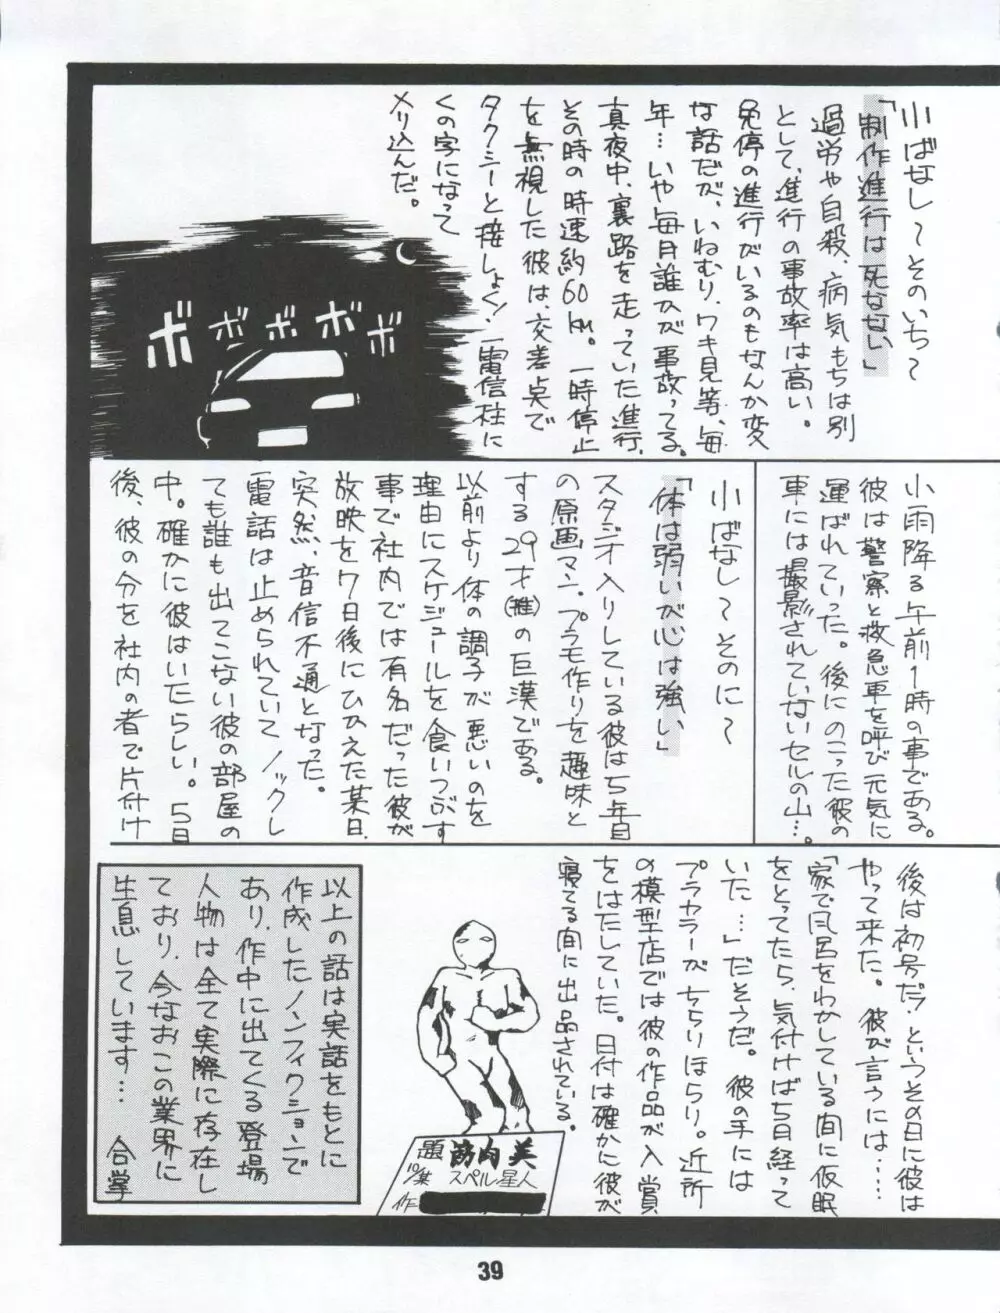 小ばなし〜そのいち〜
「制作進行は死なない」
過労や自殺、病気もちは別
として、進行の事故率は高い。
免停の進行がいるのもなんか変
な話だが、いねむり、ワキ見等、毎
年…いや毎月誰かが事故ってる。
真夜中、裏路を走っていた進行、
その時の時速約60km。一時停止
を無視した彼は、交差点で
タクシーと接しょく!電信柱に
くの字になって
メリ込んだ。
ボ ボ ボ ボ ボ
小雨降る午前1時の事である。
彼は警察と救急車を呼び元気に
運ばれていった。後にのこった彼の
車には撮影されていないセルの山…。
小ばなし〜そのに〜
「体は弱いが心は強い」
スタジオ入りしている彼は5年目
の原画マン。プラモ作りを趣味と
する29才(推)の巨漢である。
以前より体の調子が悪いのを
理由にスケジュールを食いつぶす
事で社内では有名だった彼が
放映を7日後にひかえた某日、
突然、音信不通となった。
電話は止められていて、ノックし
ても誰も出てこない彼の部屋の
中。確かに彼はいたらしい。5日
後、彼の分を社内の者で片付け
後は初号だ!というその日に彼は
やって来た。彼が言うには……
「家で風呂をわかしている間に仮眠
をとってたら、気付けば5日経って
いた…」だそうだ。彼の手には
プラカラーがちらりほらり。近所
の模型店では彼の作品が入賞
をはたしていた。日付は確かに彼が
寝てる間に出品されている。
題 筋肉美
スペル星人
作
以上の話は実話をもとに
作成したノンフィクションで
あり、作中に出てくる登場
人物は全て実際に存在し
ており、今なおこの業界に
生息しています… 合掌
39